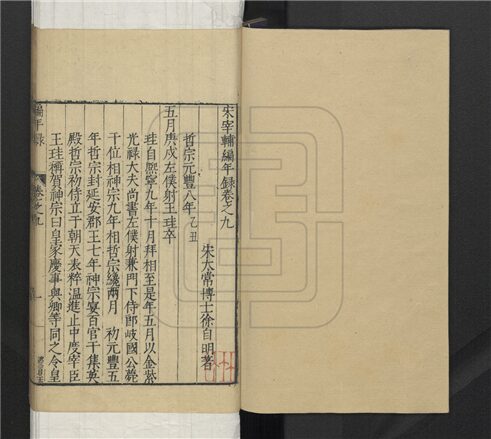 宋宰輔編年錄卷之九
宋太常博士徐自明著
哲宗元豐八年乙丑
五月庚戌左僕射王珪卒
珪自熙寧九年十月拜相至是年五月以金紫
光祿大夫尚書左僕射兼門下侍郎岐國公薨
于位相神宗九年相哲宗纔兩月 初元豐五
年哲宗封延安郡王七年神宗宴百官于集英
殿哲宗初侍立于朝天表粹溫進止中度宰臣
王珪稱賀神宗曰皇家慶事與卿等同之今皇
編年錄 卷之九 一